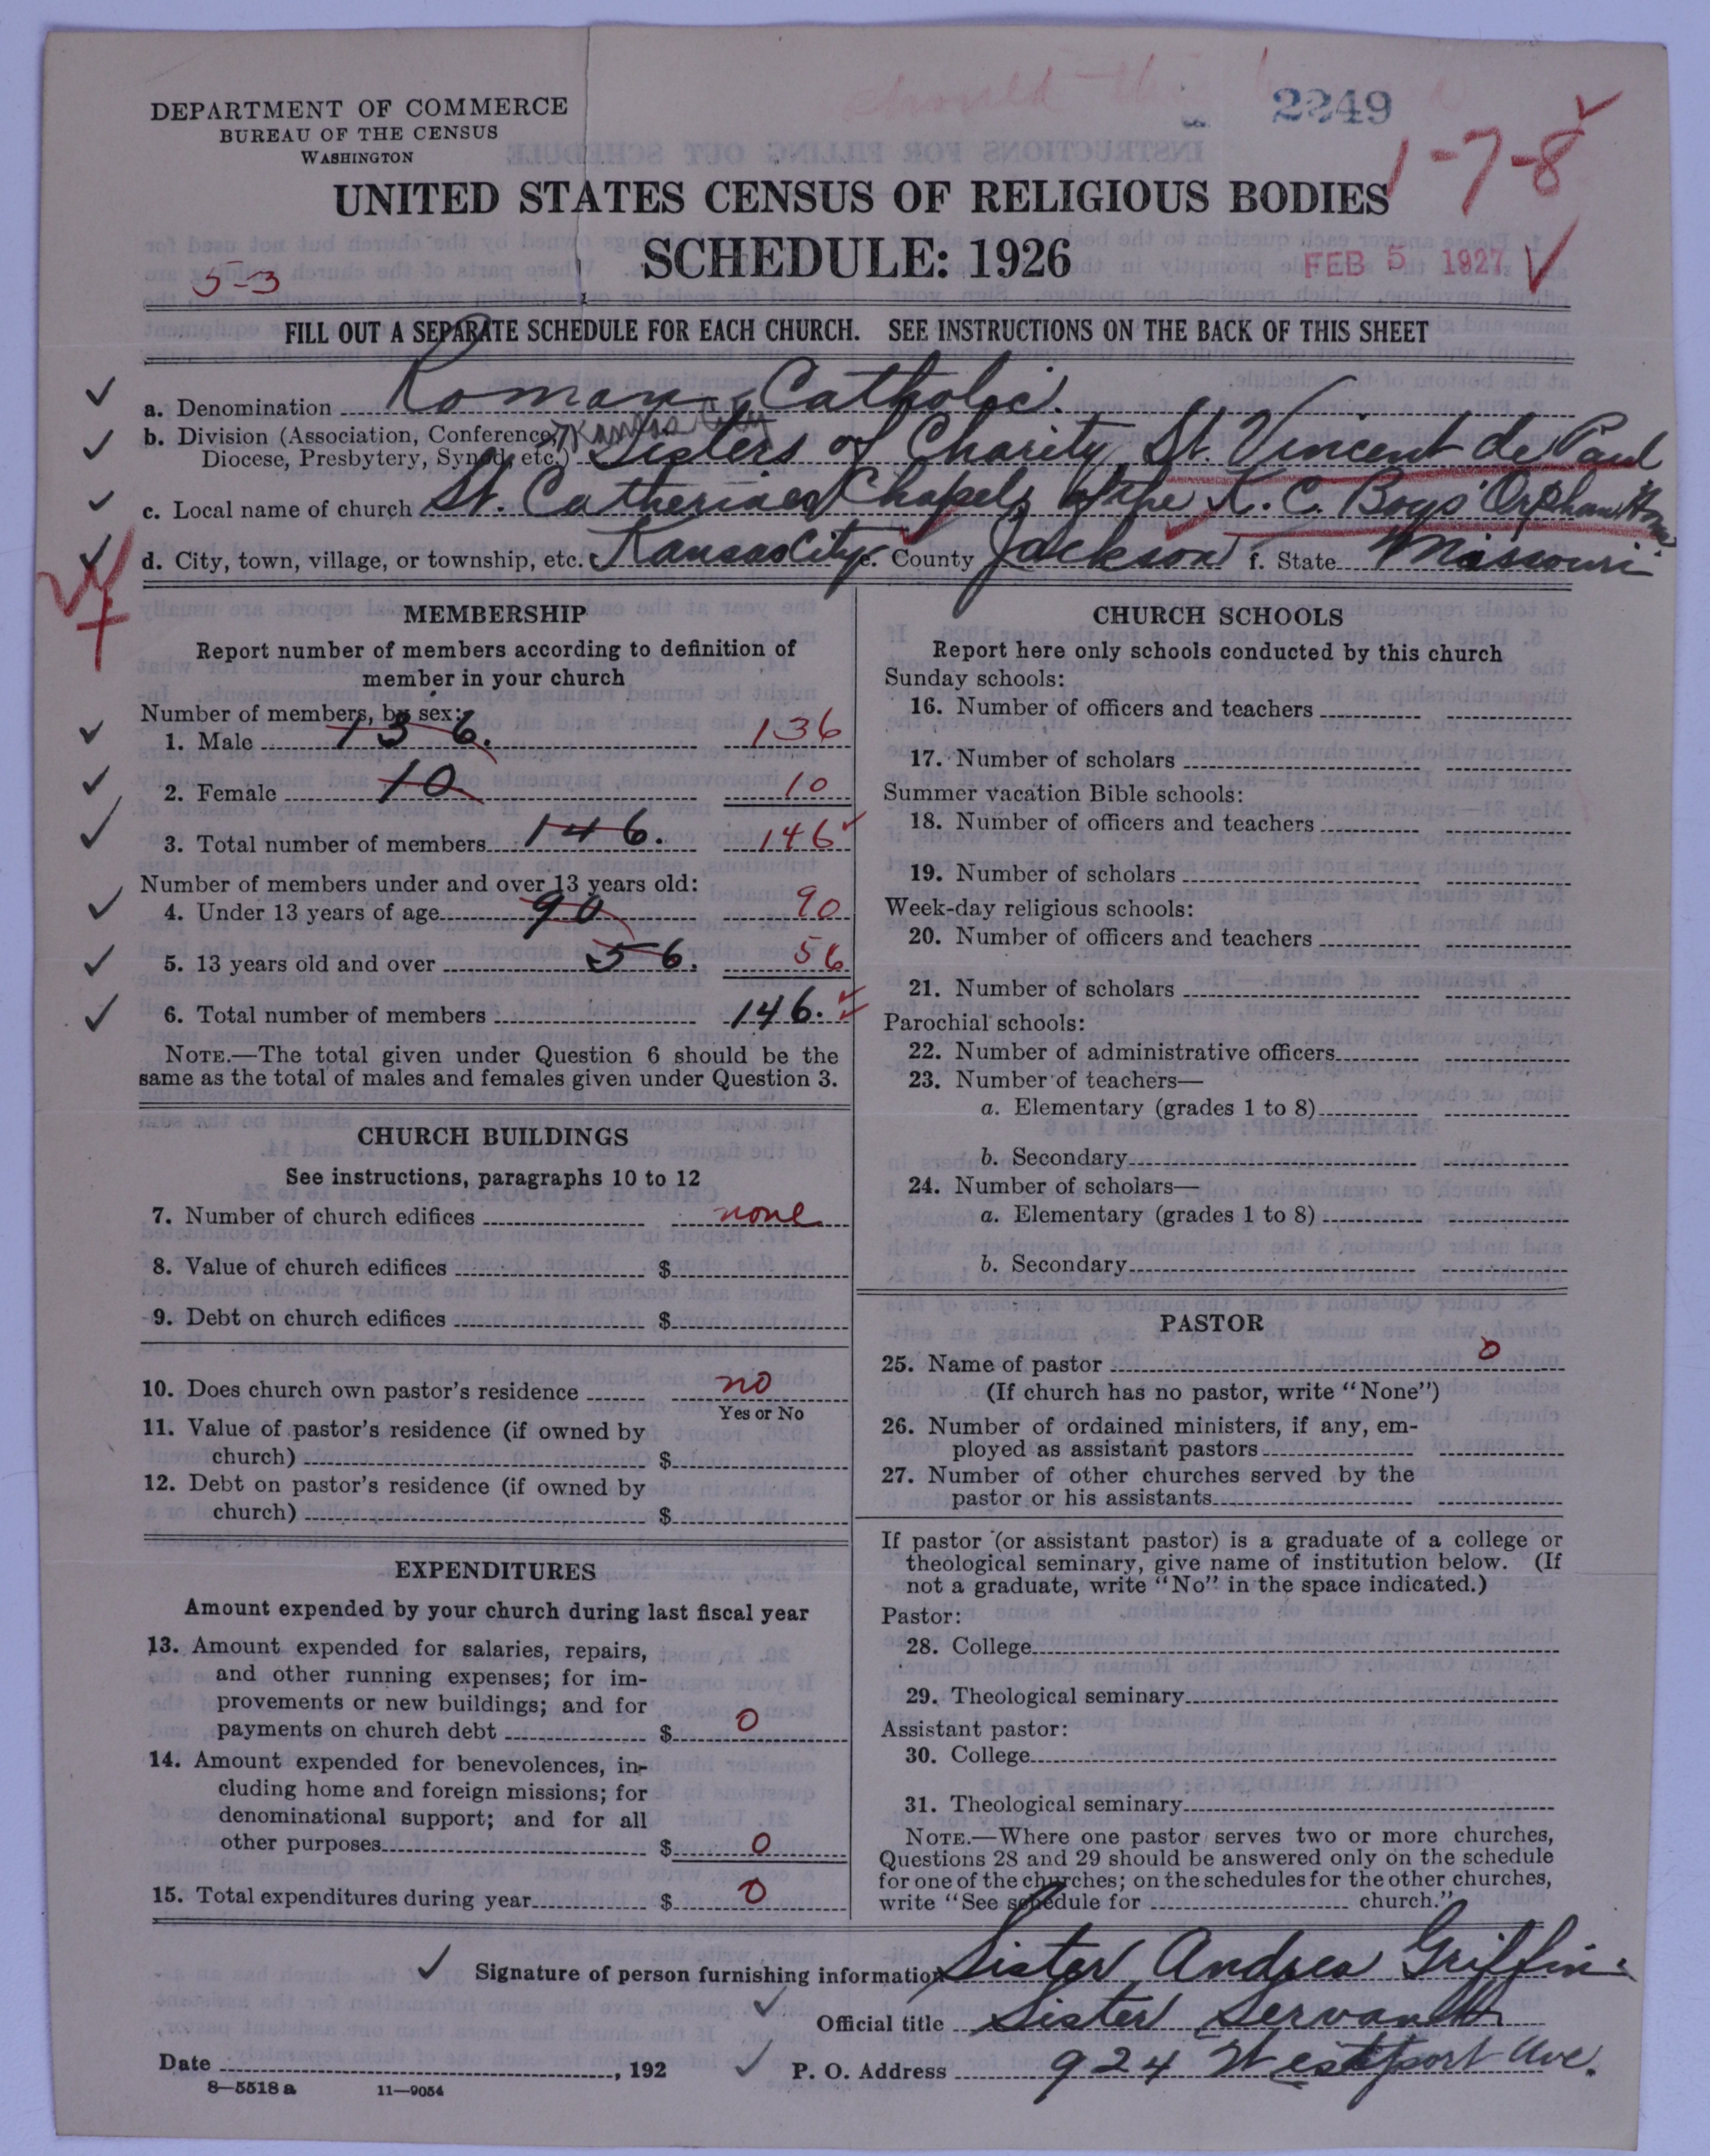 2249
DEPARTMENT OF COMMERCE
BUREAU OF THE CENSUS
WASHINGTON
1-7-8
UNITED STATES CENSUS OF RELIGIOUS BODIES
SCHEDULE: 1926
5-3
FEB 5 1927
FILL OUT A SEPARATE SCHEDULE FOR EACH CHURCH. SEE INSTRUCTIONS ON THE BACK OF THIS SHEET
a. Denomination Roman Catholic.
Kansas City
b. Division (Association, Conference, Diocese, Presbytery, Synod, etc.) Sisters of Charity, St. Vincent de Paul
c. Local name of church St. Catherines Chapel, of the K. C. Boys' Orphan Home
d. City, town, village, or township, etc. Kansas City e. County Jackson f. State Missouri
MEMBERSHIP
Report number of members according to definition of
member in your church
Number of members, by sex:
1. Male 136. 136
2. Female 10 10
3. Total number of members 146. 146
Number of members under and over 13 years old:
4. Under 13 years of age 90 90
5. 13 years old and over 56. 56
6. Total number of members 146.
NOTE.—The total given under Question 6 should be the
same as the total of males and females given under Question 3.
CHURCH BUILDINGS
See instructions, paragraphs 10 to 12
7. Number of church edifices none
8. Value of church edifices $
9. Debt on church edifices $
10. Does church own pastor's residence no
Yes or No
11. Value of pastor's residence (if owned by
church) $
12. Debt on pastor's residence (if owned by
church) $
EXPENDITURES
Amount expended by your church during last fiscal year
13. Amount expended for salaries, repairs,
and other running expenses; for im-
provements or new buildings; and for
payments on church debt $ 0
14. Amount expended for benevolences, in-
cluding home and foreign missions; for
denominational support; and for all
other purposes $ 0
15. Total expenditures during year $ 0
CHURCH SCHOOLS
Report here only schools conducted by this church
Sunday schools:
16. Number of officers and teachers
17. Number of scholars
Summer vacation Bible schools:
18. Number of officers and teachers
19. Number of scholars
Week-day religious schools:
20. Number of officers and teachers
21. Number of scholars
Parochial schools:
22. Number of administrative officers
23. Number of teachers—
a. Elementary (grades 1 to 8)
b. Secondary
24. Number of scholars—
a. Elementary (grades 1 to 8)
b. Secondary
PASTOR
25. Name of pastor 0
(If church has no pastor, write "None")
26. Number of ordained ministers, if any, em-
ployed as assistant pastors
27. Number of other churches served by the
pastor or his assistants
If pastor (or assistant pastor) is a graduate of a college or
theological seminary, give name of institution below. (If
not a graduate, write "No" in the space indicated.)
Pastor:
28. College
29. Theological seminary
Assistant pastor:
30. College
31. Theological seminary
NOTE.—Where one pastor serves two or more churches,
Questions 28 and 29 should be answered only on the schedule
for one of the churches; on the schedules for the other churches,
write "See schedule for church."
Signature of person furnishing information Sister Andrea Griffin.
Official title Sister Servant
Date , 192 P. O. Address 924 Westport Ave.
8—5518 a 11—9054